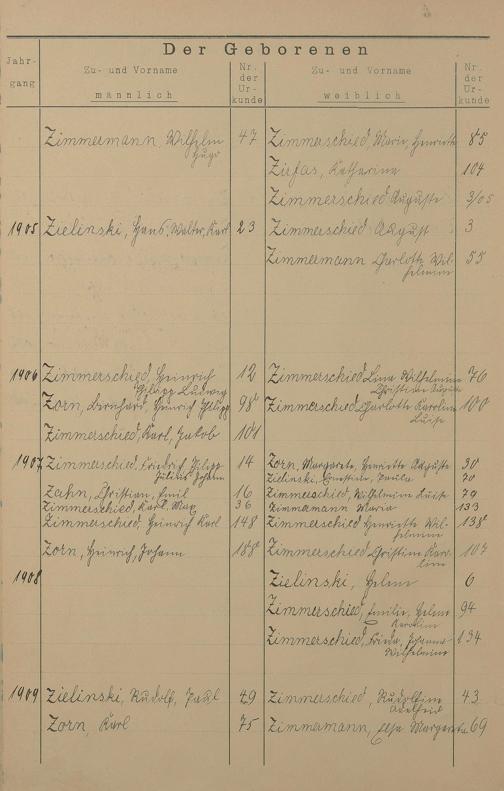 Der Geborenen
Jahr-
gang
Zu- und Vorname
männlich
Nr.
der
Ur-
kunde
Zu- und Vorname
weiblich
Nr.
der
Ur-
kunde
Zimmermann, Wilhelm 47 Zimmerschied, Marie, Henriette 85
Hugo
Zirfas, Katharina 104
Zimmerschied Auguste 3/05
1905 Zielinski, Hans, Walter, Karl 23 Zimmerschied August 3
Zimmermann Charlotte Wil- 55
helmine
1906 Zimmerschied, Heinrich 12 Zimmerschied Lina Wilhelmine 76
Philipp Ludwig Christiane Auguste
Zorn, Bernhard, Heinrich Philipp 98a Zimmerschied Charlotte Karoline 100
Luise
Zimmerschied, Karl, Jakob 101
1907 Zimmerschied, Friedrich Philipp 14 Zorn, Margarete, Henriette Auguste 30
Julius Johann Zielinski, Ernestine, Paula 70
Zahn, Christian, Emil 16 Zimmerschied, Wilhelmine Luise 79
Zimmerschied, Karl, Max 36 Zimmermann Maria 133
Zimmerschied, Heinrich Karl 148 Zimmerschied Henriette Wil- 138a
helmine
Zorn, Heinrich, Johann 188a Zimmerschied Christine Karo- 107
line
1908 Zielinski, Helene 6
Zimmerschied, Emilie, Helene 94
Karoline
Zimmerschied, Frieda, Johanna 134
Wilhelmine
1909 Zielinski, Rudolf, Paul 49 Zimmerschied, Rudolfine 43
Adelheid
Zorn, Karl 75 Zimmermann, Elsa Margareta 69